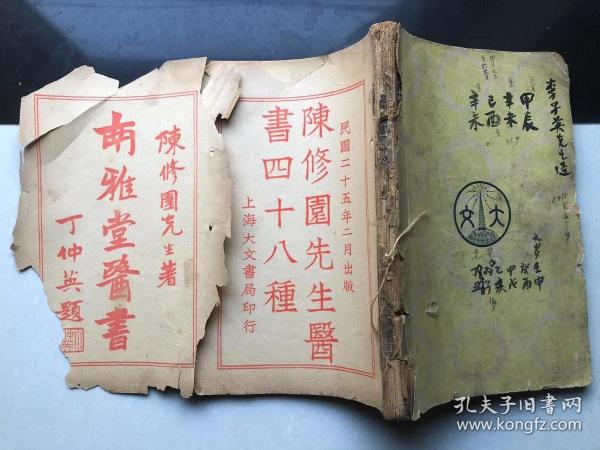 陳修園先生著
南雅堂醫書
丁仲英題
民國二十五年二月出版
陳修園先生醫
書四十八種
上海大文書局印行
李子英先生造
甲辰
辛未
己酉
辛未
大文
壬申
癸酉
甲戌
乙亥
孔夫子旧书网
www.kongfz.com